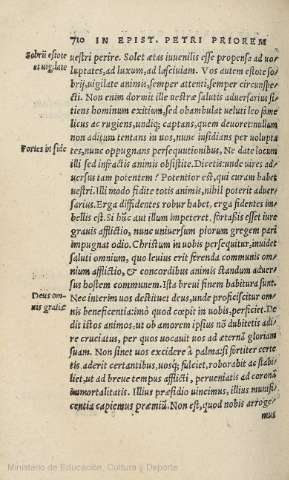 710 IN EPIST. PETRI PRIOREM
Sobrii estote
ac uigilate
uestri perire. Solet ætas iuuenilis esse propensa ad uo-
luptates, ad luxum, ad lasciuiam. Vos autem estote so-
brij, uigilate animis, semper attenti, semper circunspe-
cti. Non enim dormit ille uestræ salutis aduersarius si-
tiens hominum exitium, sed obambulat ueluti leo fame-
licus ac rugiens, undiq; captans, quem deuoret: nullum
non aditum tentans in uos, nunc insidians per uolupta
Fortes in fide
tes, nunc oppugnans persequutionibus. Ne date locum
illi sed infractis animis obsistite. Dicetis: unde uires ad-
uersus tam potentem? Potentior est, qui curam habet
uestri. Illi modo fidite totis animis, nihil poterit aduer-
sarius. Erga diffidentes robur habet, erga fidentes im-
bellis est. Si hûc aut illum impeteret, fortaßis esset iure
grauis afflictio, nunc uniuersum piorum gregem pari
impugnat odio. Christum in uobis persequitur, inuidet
saluti omnium, quo leuius erit ferenda communis om-
nium afflictio, & concordibus animis standum aduer-
sus hostem communem. Ista breui finem habitura sunt.
Deus om-
nis gratiæ
Nec interim uos destituet deus, unde proficiscitur om-
nis beneficentia: imò quod cœpit in uobis, perficiet. De
dit istos animos, ut ob amorem ipsius nõ dubitetis adi-
re cruciatus, per quos uocauit uos ad æternã gloriam
suam. Non sinet uos excidere à palma: si fortiter certe
tis, aderit certantibus, uosq; fulciet, roborabit ac stabi-
liet, ut ad breue tempus afflicti, perueniatis ad coronã
immortalitatis. Illius præsidio uincimus, illius munifi-
centia capiemus præmiũ. Non est, quod nobis arroge-
mus
Ministerio de Educación, Cultura y Deporte